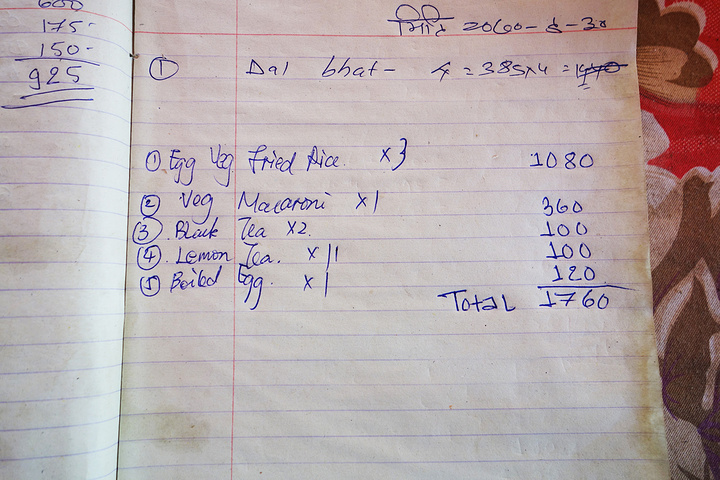 600
175-
150-
925
मिति 2060-8-30
① Dal bhat- 4=385x4=
① Egg Veg Fried Rice. x3 1080
② Veg Macaroni x1 360
③ Black Tea x2. 100
④ Lemon Tea. x 11 100
⑤ Boiled Egg. x 1 120
Total 1760